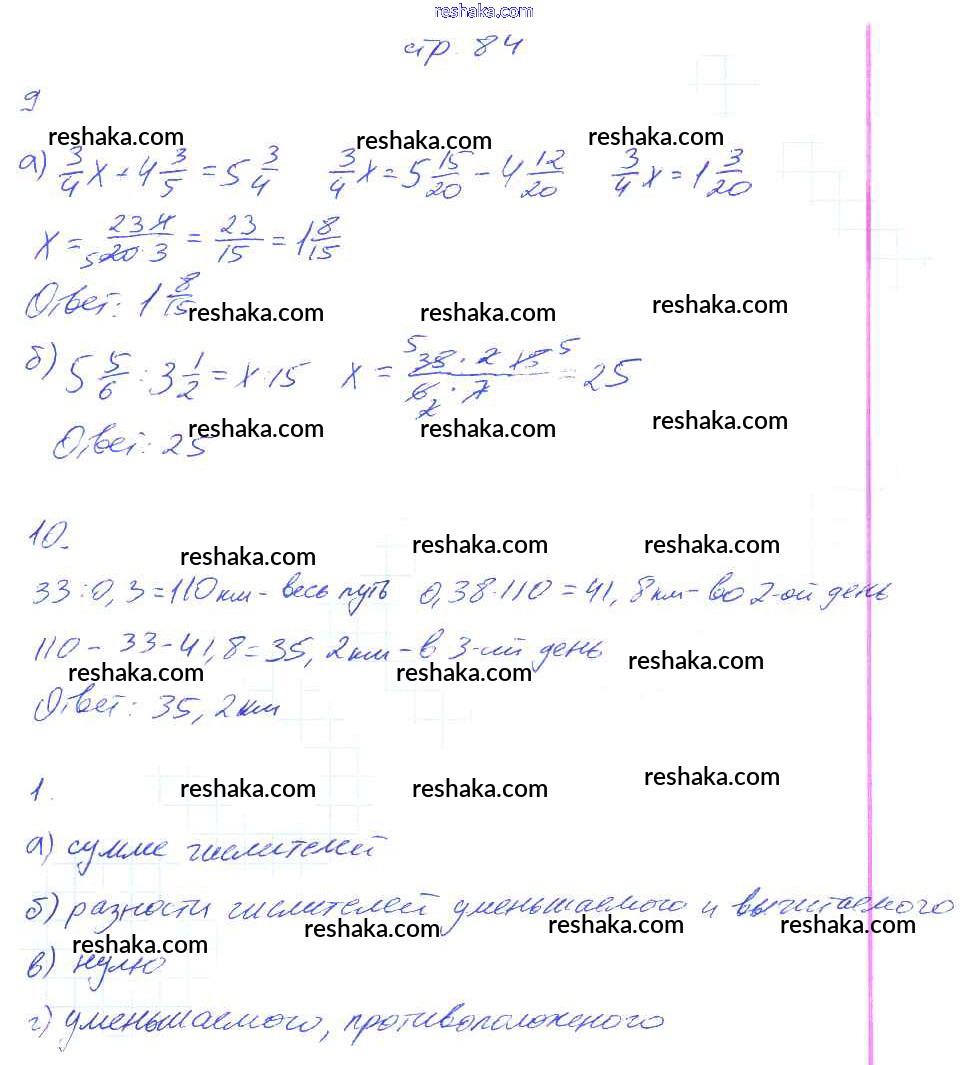 reshaka.com
стр. 84
9
reshaka.com reshaka.com reshaka.com
а) 3/4 x + 4 3/5 = 5 3/4 3/4 x = 5 15/20 - 4 12/20 3/4 x = 1 3/20
x = 23·4/20·3 5 = 23/15 = 1 8/15
Ответ: 1 8/15
reshaka.com reshaka.com reshaka.com
б) 5 5/6 : 3 1/2 = x : 15 x = 5 35 · 2 · 15 5/6 2 · 7 = 25
Ответ: 25
reshaka.com reshaka.com reshaka.com
10.
reshaka.com reshaka.com reshaka.com
33 : 0,3 = 110 км - весь путь 0,38·110 = 41,8 км - во 2-ой день
110 - 33 - 41,8 = 35,2 км - в 3-ий день
reshaka.com reshaka.com reshaka.com
Ответ: 35,2 км
1.
reshaka.com reshaka.com reshaka.com
а) сумме числителей
б) разности числителей уменьшаемого и вычитаемого
reshaka.com reshaka.com reshaka.com reshaka.com
в) нулю
г) уменьшаемого, противоположеного